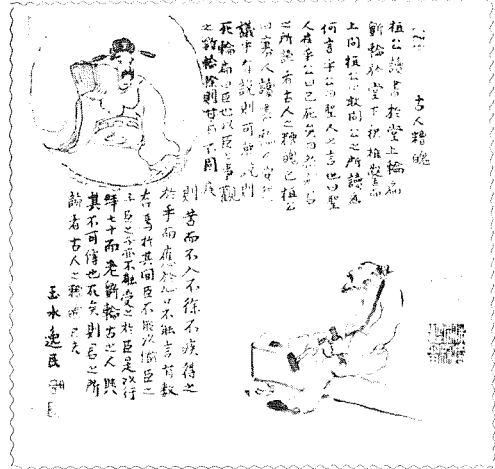 古人糟魄
桓公讀書於堂上輪扁
斲輪於堂下釋椎鑿而
上問桓公敢問公之所讀為
何言乎公曰聖人之言也曰聖
人在乎公曰已死矣曰然則君
之所讀者古人之糟魄已桓公
曰寡人讀書輪人安得
議乎有說則可無說則
死輪扁曰臣也以臣之事觀
之斲輪徐則甘而不固疾
則苦而不入不徐不疾得之
於手而應於心口不能言有數
存焉於其間臣不能以喻臣之
子臣之子亦不能受之於臣是以行
年七十而老斲輪古之人與
其不可傳也死矣則君之所
讀者古人之糟魄已夫
玉水逸民